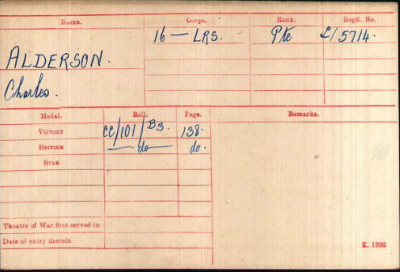 Name. Corps. Rank. Regtl. No.
ALDERSON. 16 — LRS. Pte L/5714.
Charles.
Medal. Roll. Page. Remarks.
VICTORY CC/101/B3. 138.
BRITISH — do — do.
STAR
Theatre of War first served in
Date of entry therein
K. 1380